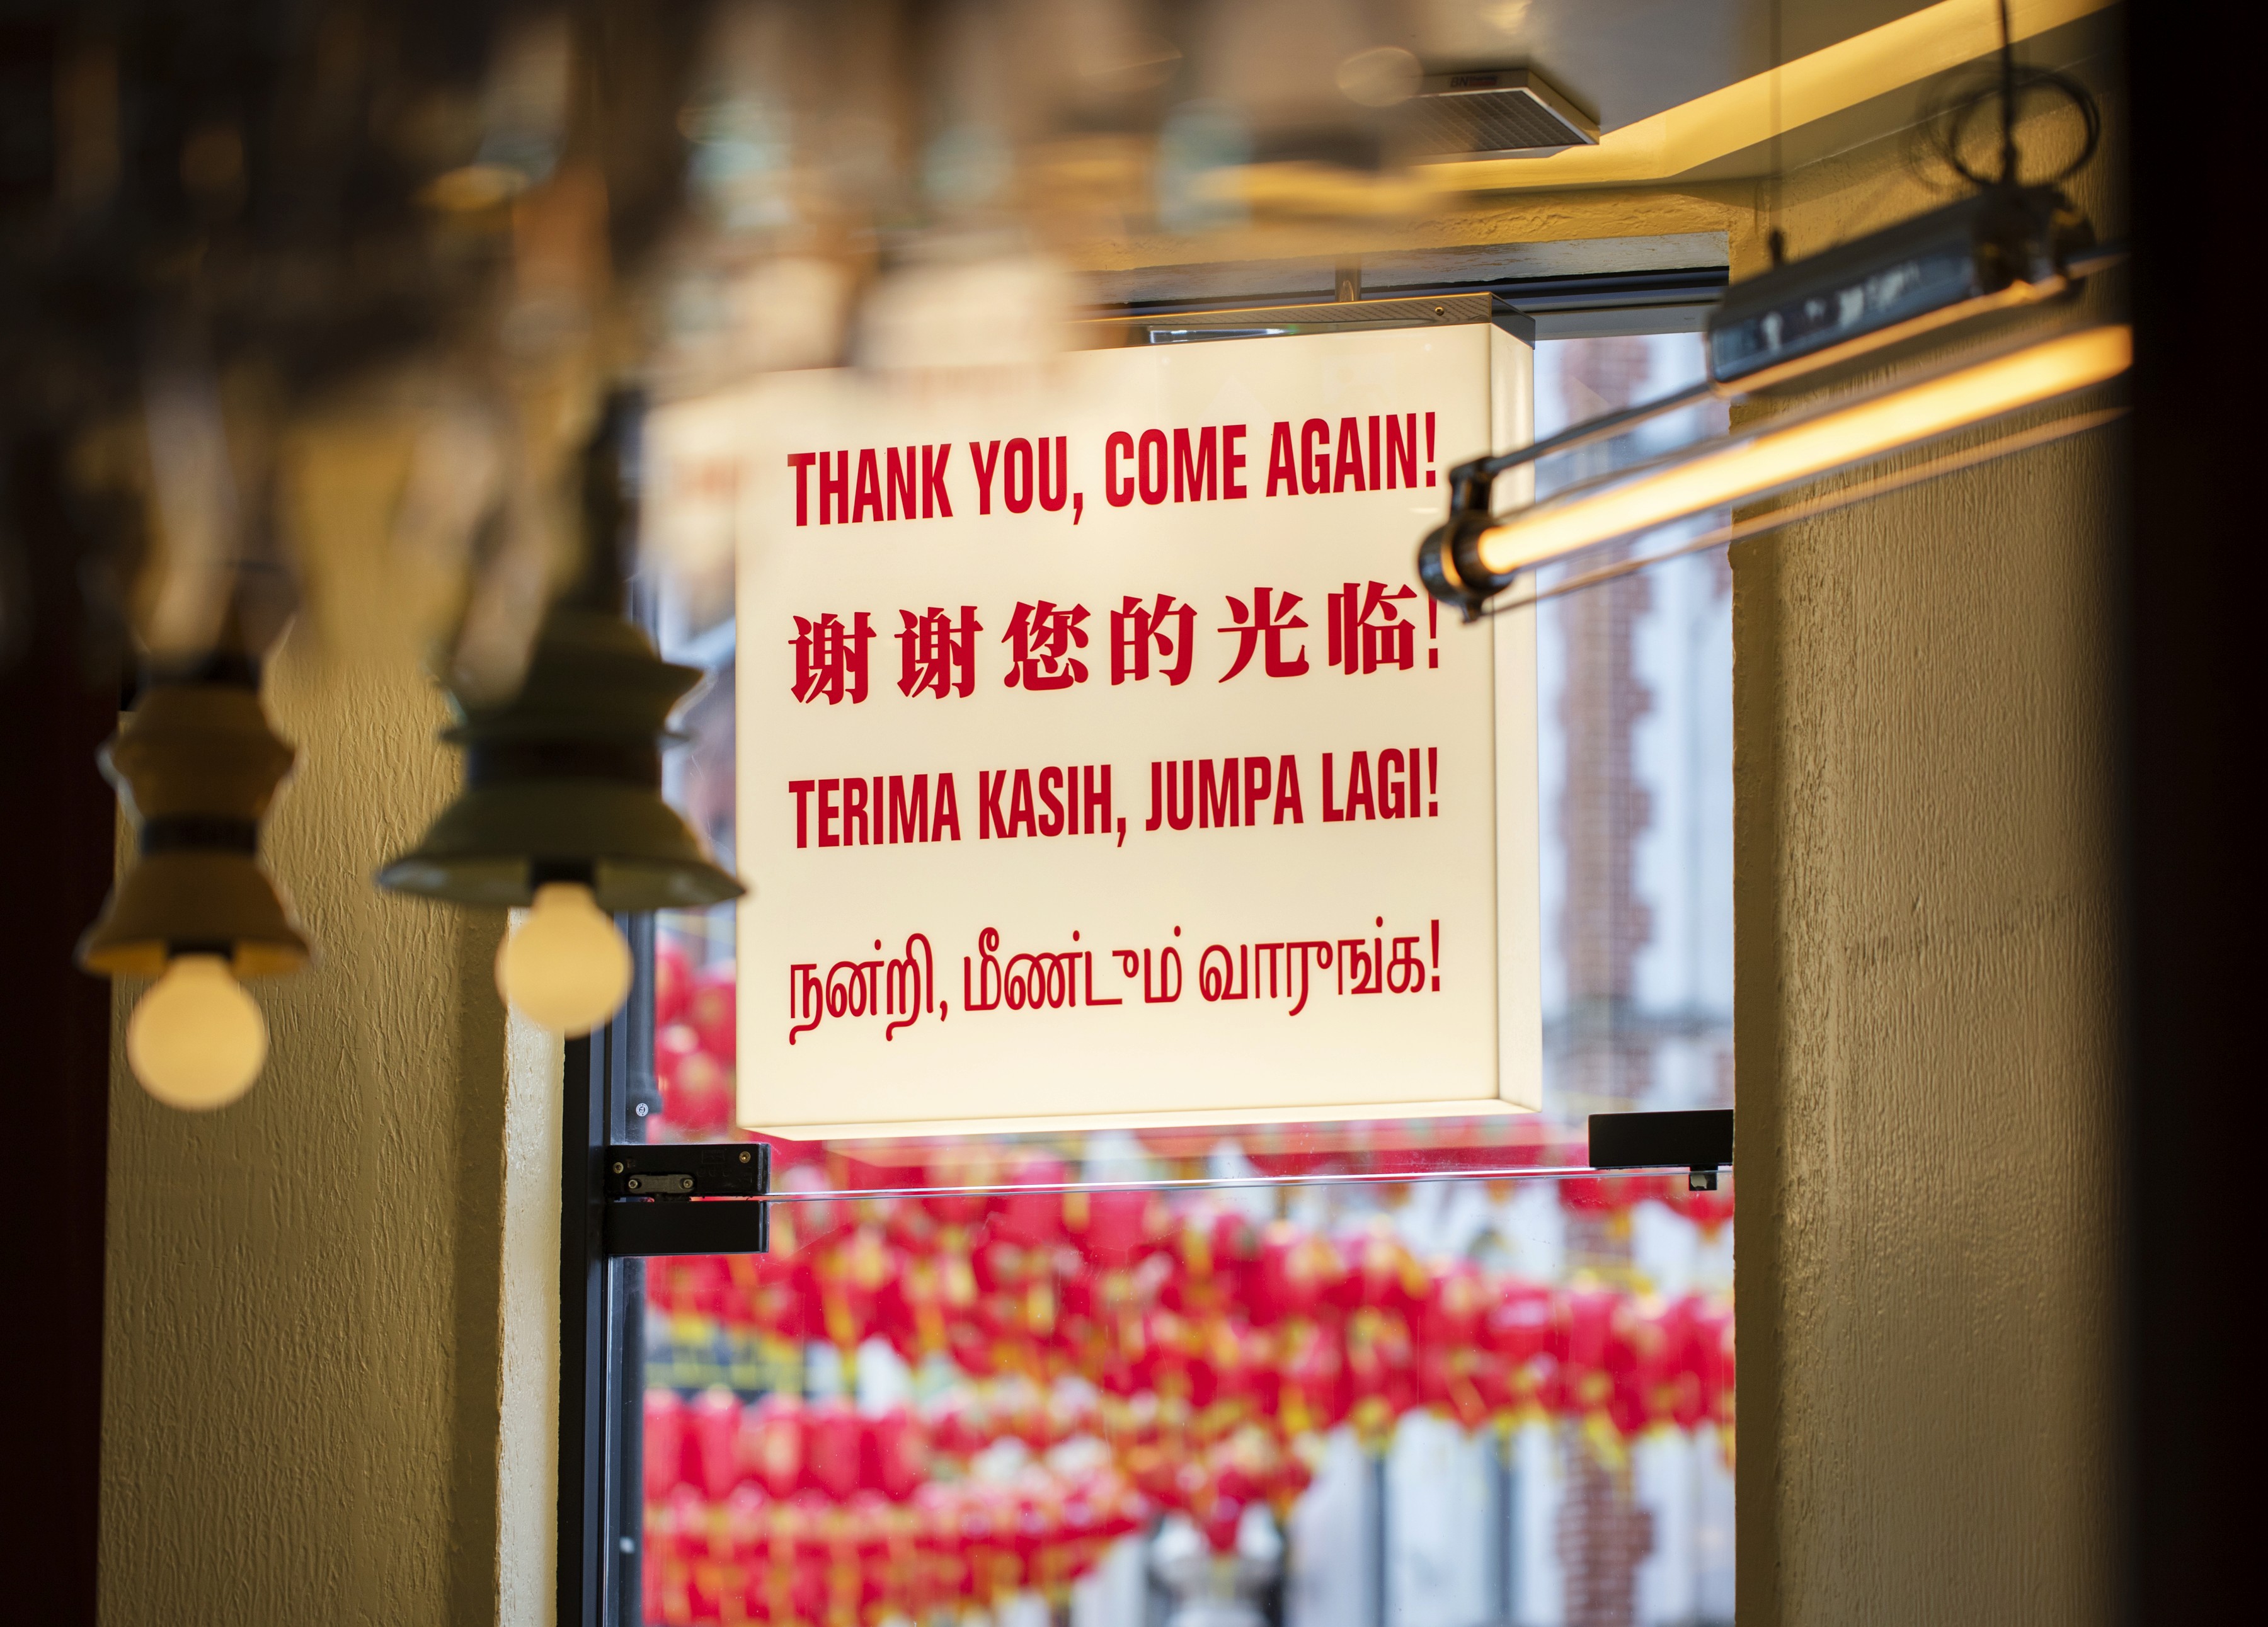 THANK YOU, COME AGAIN!
谢谢您的光临!
TERIMA KASIH, JUMPA LAGI!
நன்றி, மீண்டும் வாருங்க!